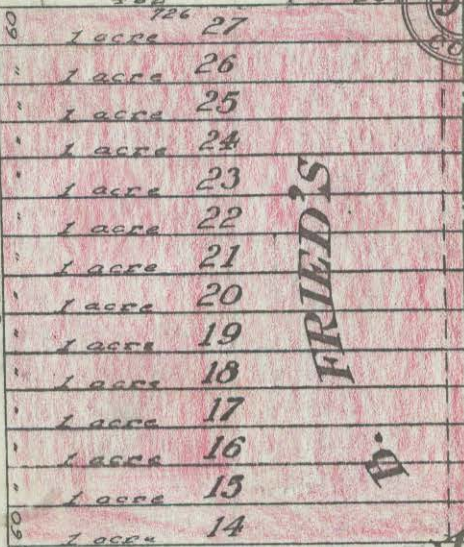 726
60 1 acre 27
" 1 acre 26
" 1 acre 25
" 1 acre 24
" 1 acre 23
" 1 acre 22
" 1 acre 21
" 1 acre 20
" 1 acre 19
" 1 acre 18
" 1 acre 17
" 1 acre 16
" 1 acre 15
60 1 acre 14
D. FRIED'S